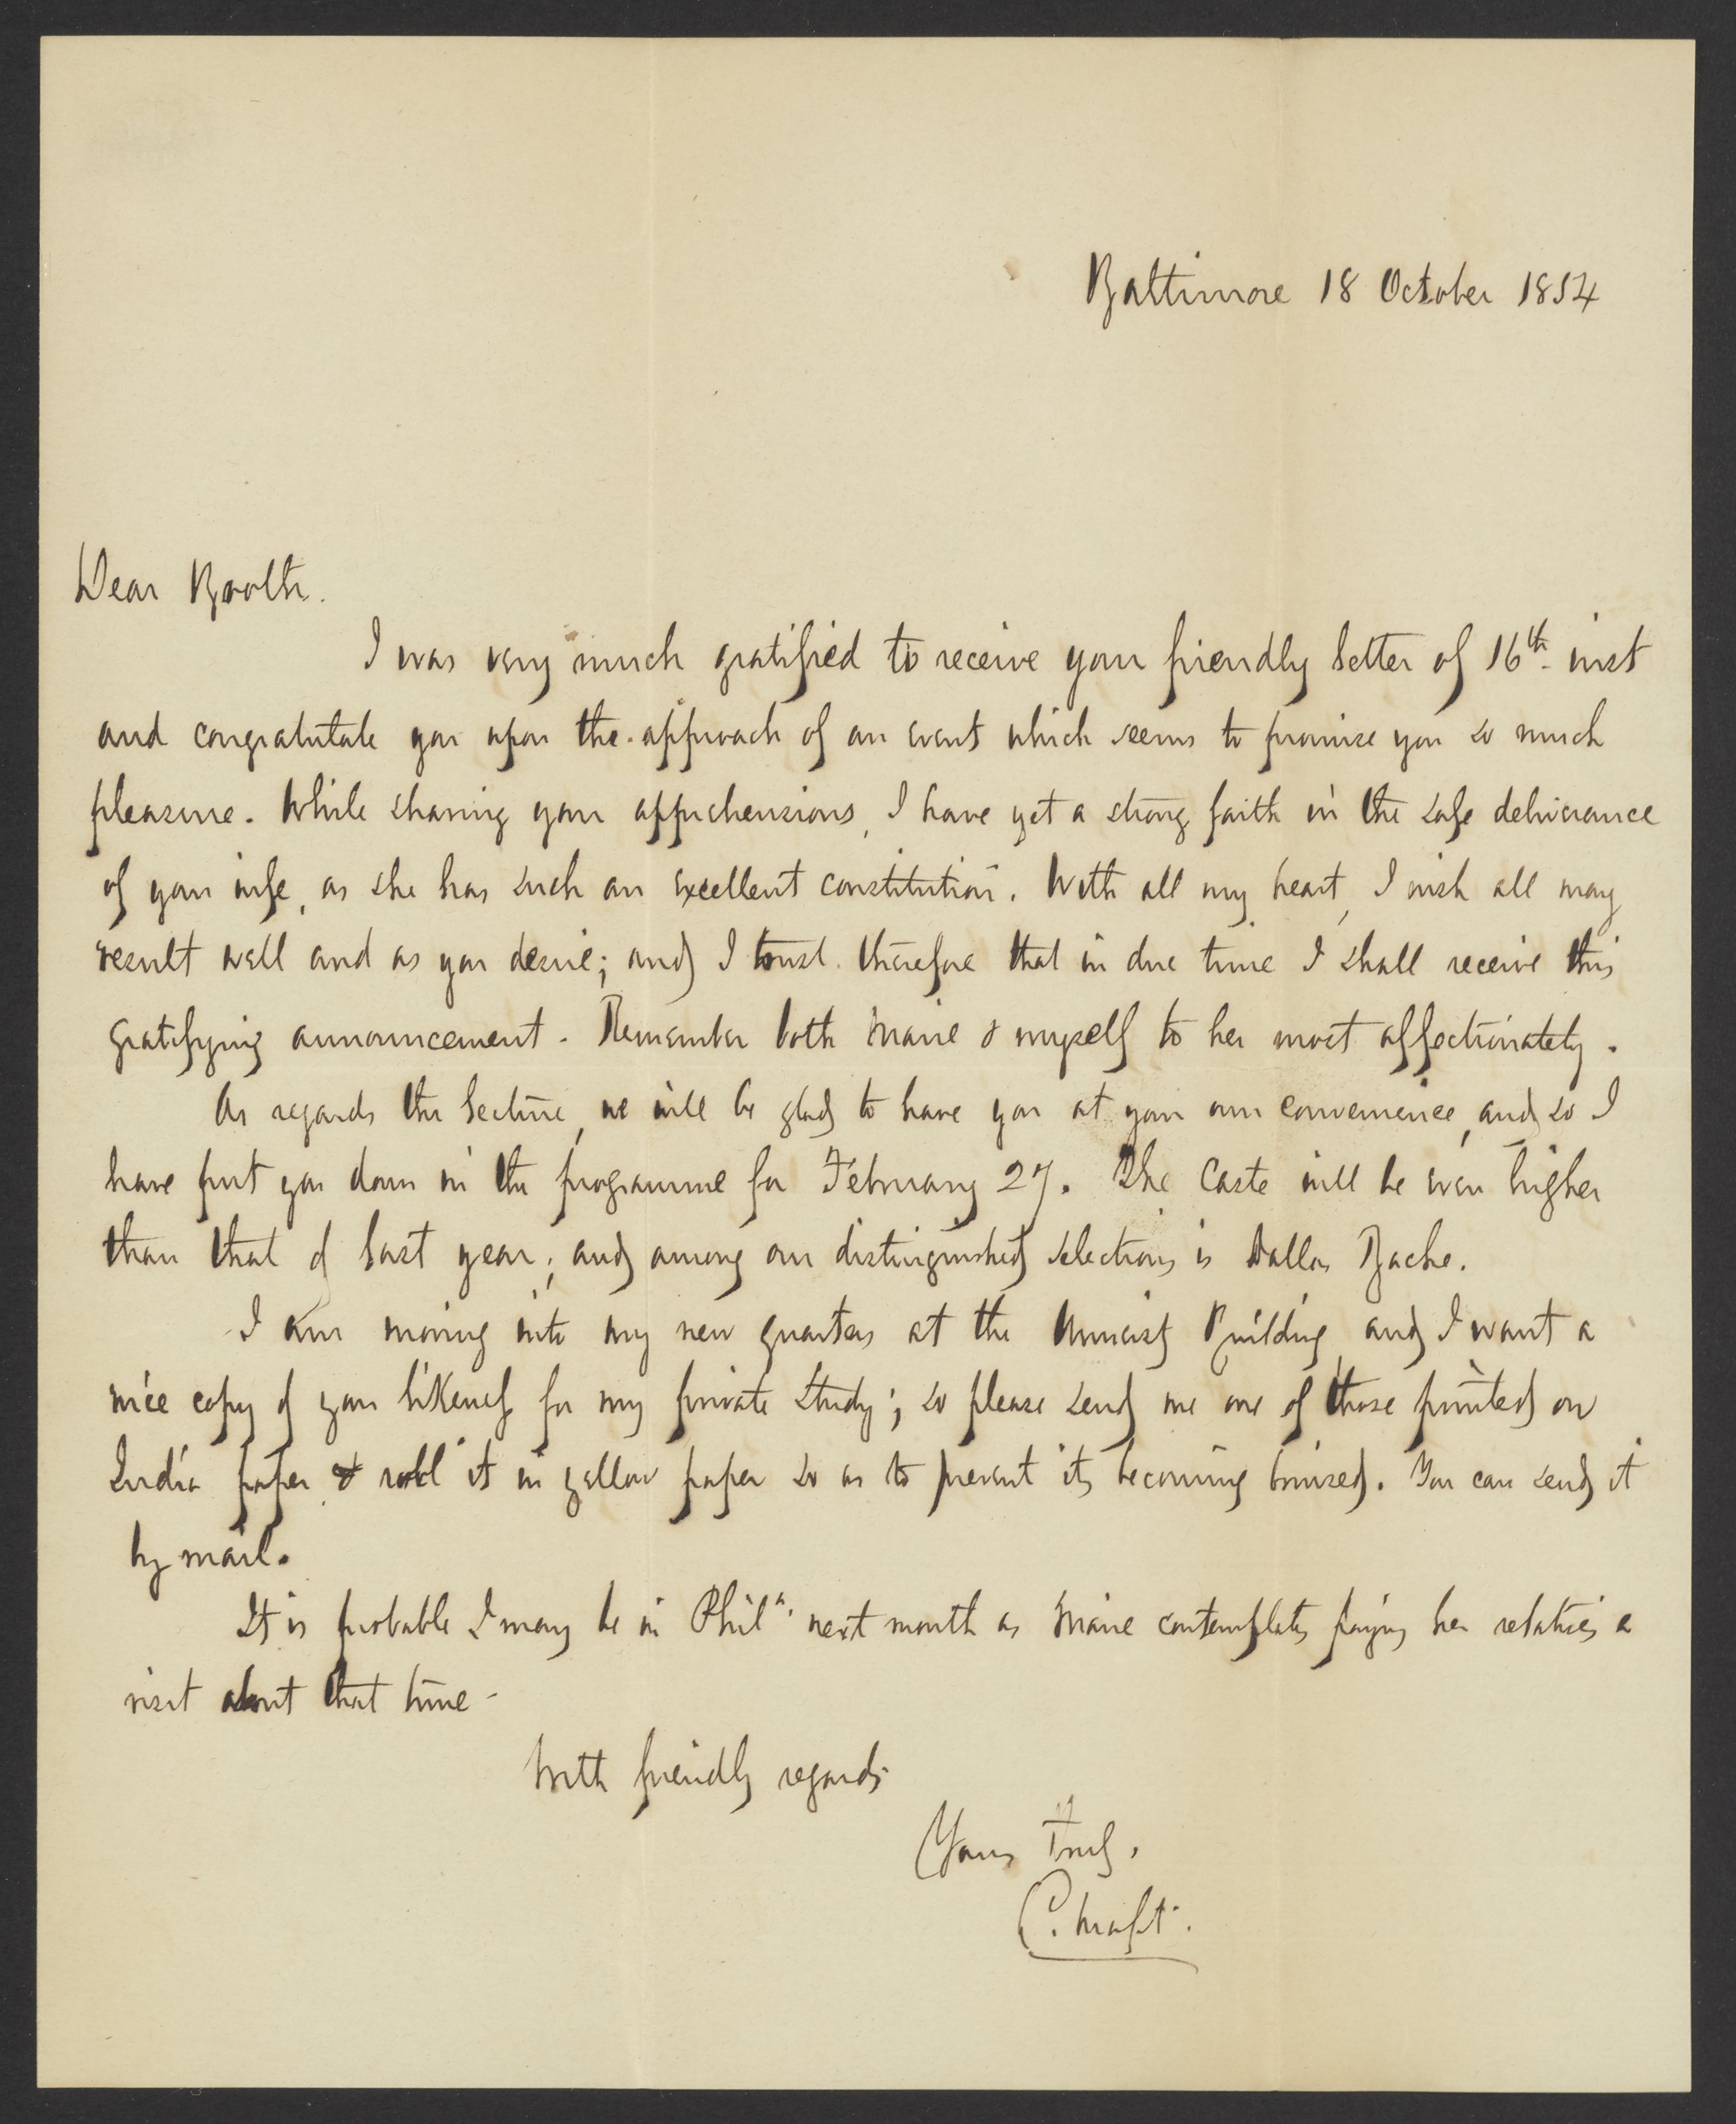 Baltimore 18 October 1854
Dear Booth.
I was very much gratified to receive your friendly letter of 16th. inst
and congratulate you upon the approach of an event which seems to promise you so much
pleasure. While sharing your apprehensions, I have yet a strong faith in the safe deliverance
of your wife, as she has such an excellent constitution. With all my heart, I wish all may
result well and as you desire; and I trust therefore that in due time I shall receive this
gratifying announcement. Remember both Marie & myself to her most affectionately.
As regards the lecture, we will be glad to have you at your own convenience, and so I
have put you down in the programme for February 27. The Caste will be even higher
than that of last year; and among our distinguished selections is Dallas Bache.
I am moving into my new quarters at the University Building and I want a
nice copy of your likeness for my private study; so please send me one of those printed on
India paper & roll it in yellow paper so as to prevent its becoming bruised. You can send it
by mail.
It is probable I may be in Phila. next month as Marie contemplates paying her relatives a
visit about that time -
With friendly regards
Yours Truly.
C. Morfit.